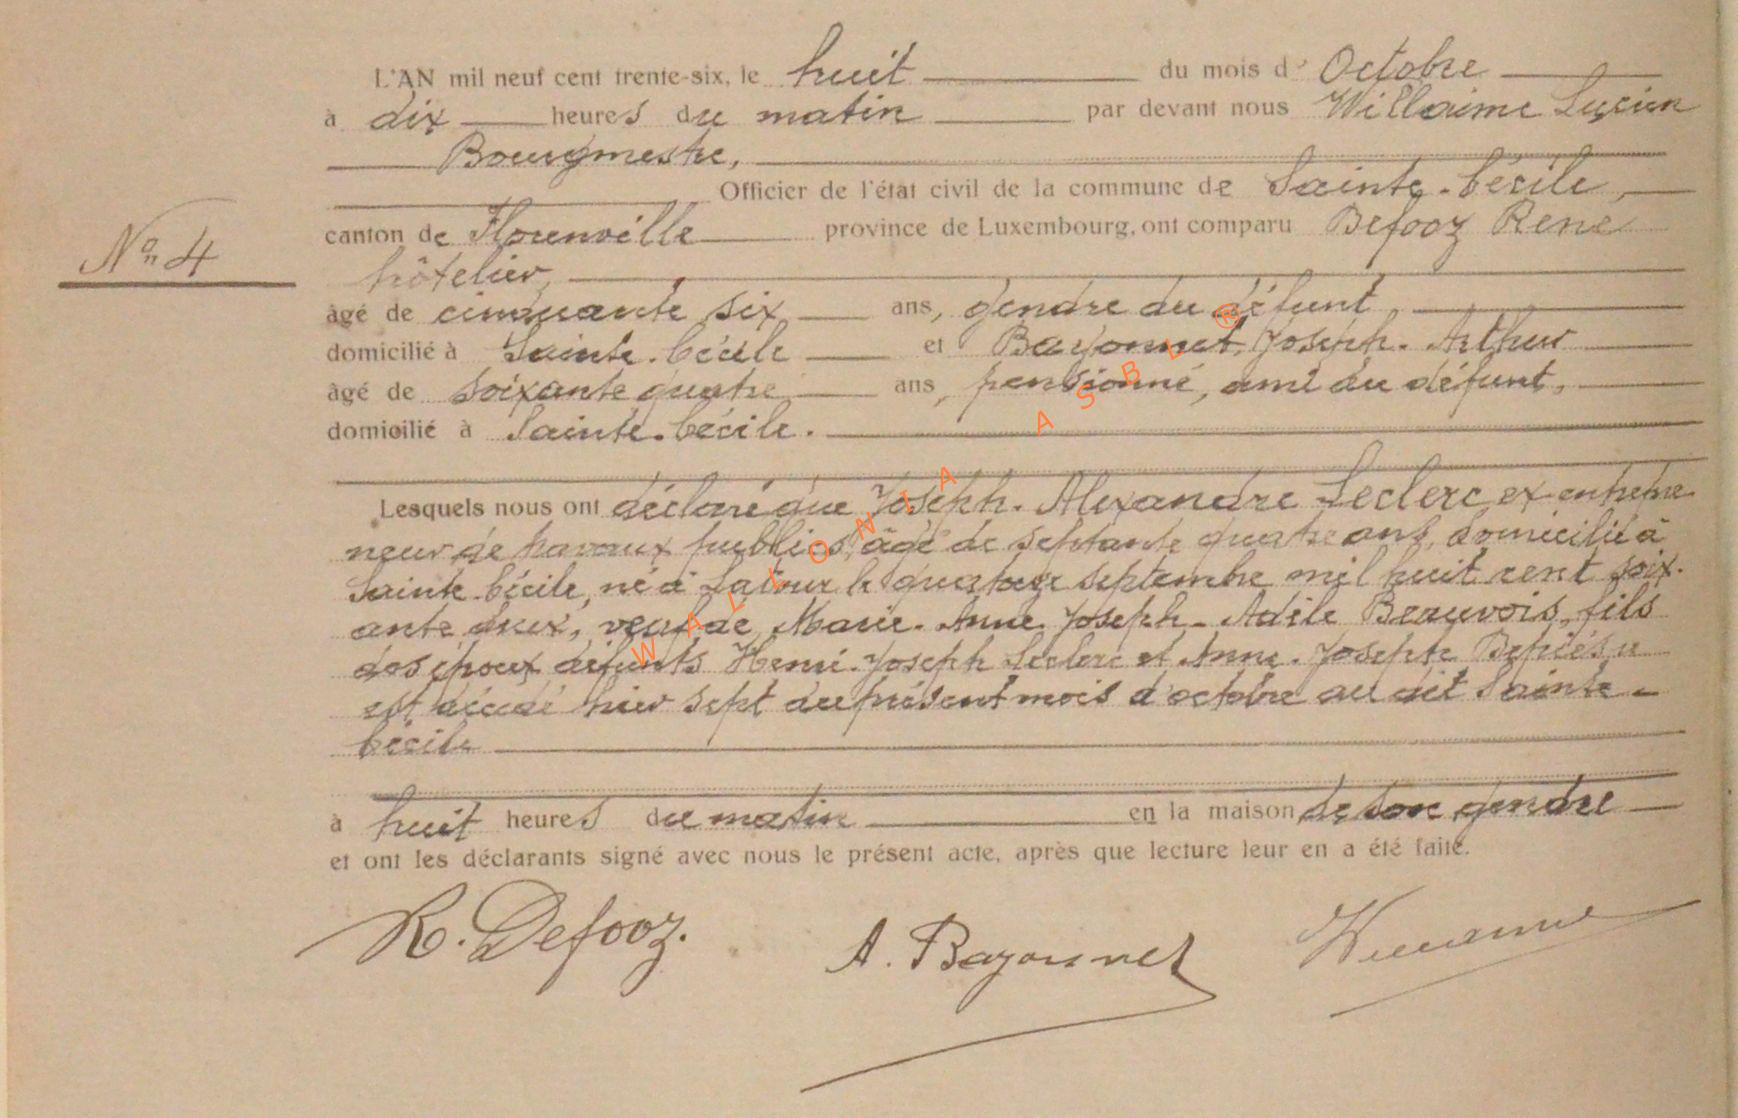 L'AN mil neuf cent trente-six, le huit du mois d' Octobre
à dix heures du matin par devant nous Willaime Lucien
Bourgmestre,
Officier de l'état civil de la commune de Sainte-Cécile,
canton de Florenville province de Luxembourg, ont comparu Defooz René
No 4
hôtelier,
âgé de cinquante six ans, gendre du défunt
domicilié à Sainte-Cécile et Bayonnet, Joseph-Arthur
âgé de soixante quatre ans, pensionné, ami du défunt,
domicilié à Sainte-Cécile.
Lesquels nous ont déclaré que Joseph-Alexandre Leclerc, ex-entrepre
neur de travaux publics, âgé de septante quatre ans, domicilié à
Sainte-Cécile, né à Latour le quatorze septembre mil huit cent soix-
ante deux, veuf de Marie-Anne-Joseph-Adèle Beauvois, fils
des époux défunts Henri-Joseph Leclerc et Anne-Josephe
est décédé hier sept du présent mois d'octobre au dit Sainte-
Cécile
à huit heures du matin en la maison de son gendre
et ont les déclarants signé avec nous le présent acte, après que lecture leur en a été faite.
R. Defooz.
A. Bayonnet
Willaime
WALLONIA ASBL ®